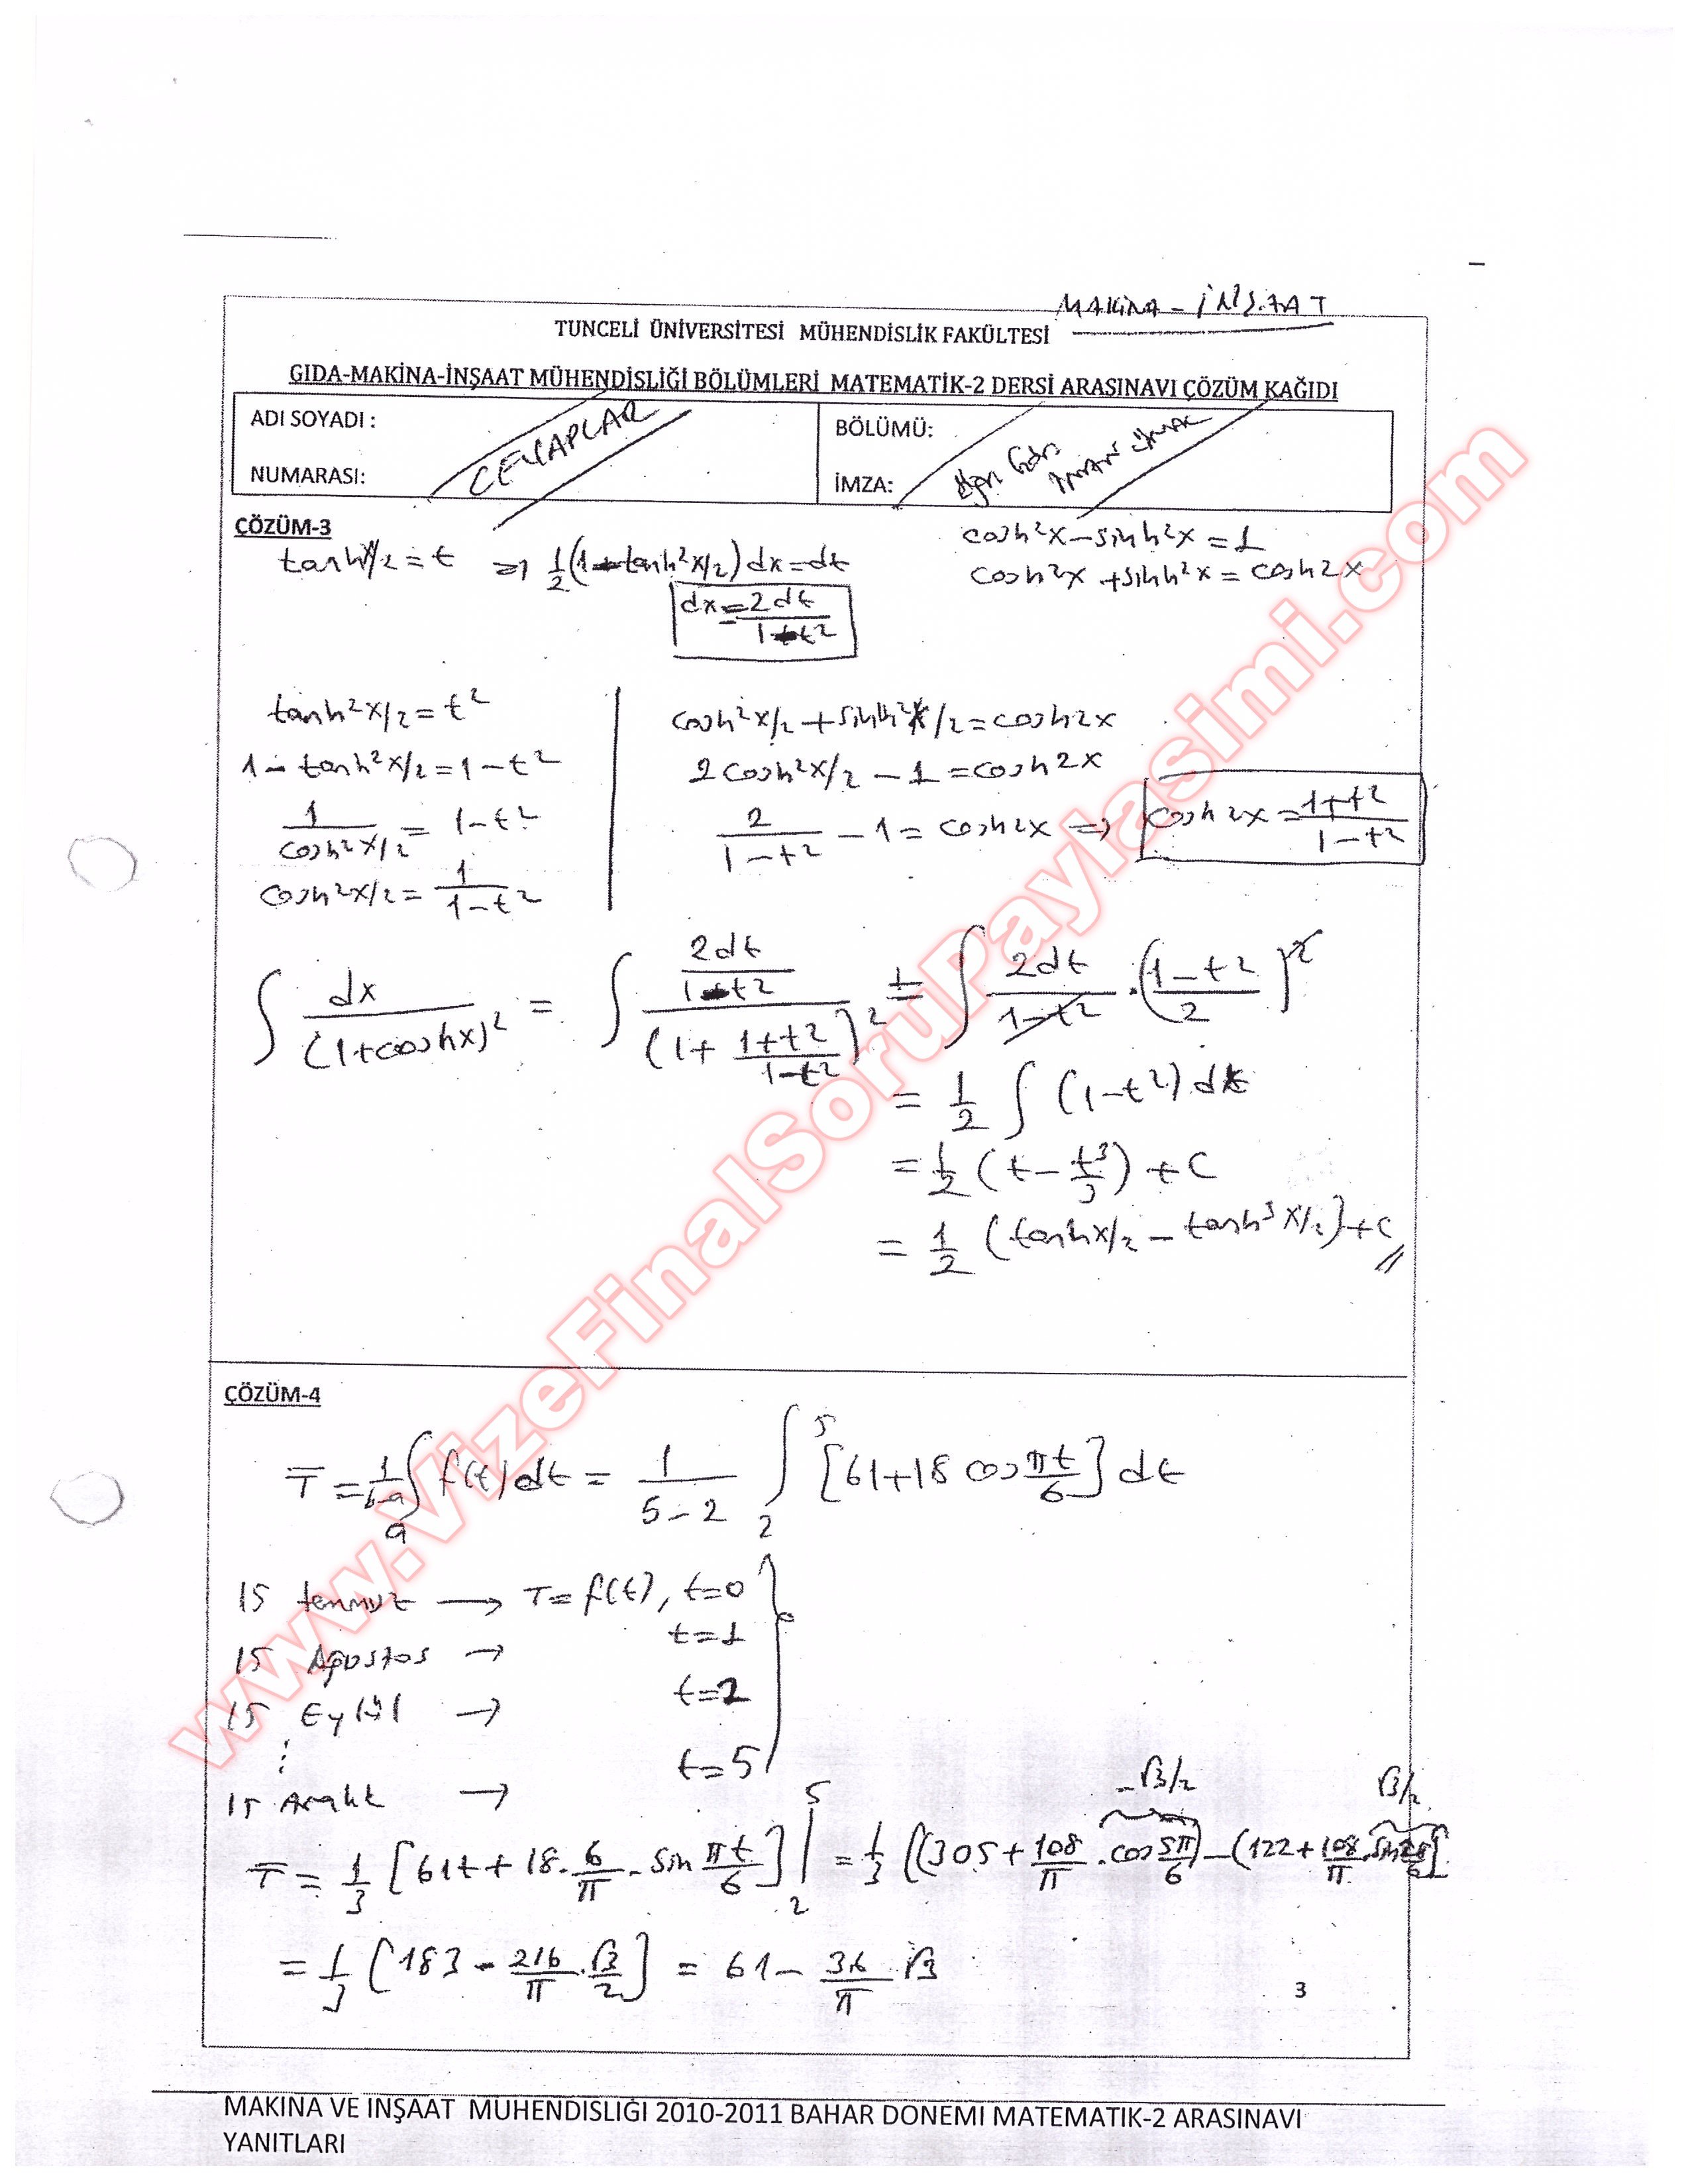 MAKİNA - İNŞAAT
TUNCELİ ÜNİVERSİTESİ MÜHENDİSLİK FAKÜLTESİ
GIDA-MAKİNA-İNŞAAT MÜHENDİSLİĞİ BÖLÜMLERİ MATEMATİK-2 DERSİ ARASINAVI ÇÖZÜM KAĞIDI
ADI SOYADI :
BÖLÜMÜ:
CEVAPLAR
NUMARASI:
İMZA:
ÇÖZÜM-3
tanh x/2 = t ⇒ 1/2 (1 - tanh²x/2) dx = dt
cosh²x - sinh²x = 1
cosh²x + sinh²x = cosh2x
dx = 2dt / 1-t²
tanh²x/2 = t²
1 - tanh²x/2 = 1-t²
1 / cosh²x/2 = 1-t²
cosh²x/2 = 1 / 1-t²
cosh²x/2 + sinh²x/2 = cosh2x
2cosh²x/2 - 1 = cosh2x
2 / 1-t² - 1 = cosh2x ⇒ cosh2x = 1+t² / 1-t²
∫ dx / (1+coshx)² = ∫ (2dt / 1-t²) / (1 + 1+t² / 1-t²)² = ∫ 2dt / 1-t² . (1-t² / 2)²
= 1/2 ∫ (1-t²) dt
= 1/2 (t - t³/3) + C
= 1/2 (tanhx/2 - tanh³x/2) + C
ÇÖZÜM-4
T̄ = 1/b-a ∫a f(t) dt = 1 / 5-2 ∫₂⁵ [61+18 cos πt/6] dt
15 temmuz → T = f(t), t=0
15 Ağustos → t=1
15 Eylül → t=2
⋮
15 Aralık → t=5
-√3/2 √3/2
T̄ = 1/3 [61t + 18 . 6/π . sin πt/6] |₂⁵ = 1/3 [(305 + 108/π . cos 5π/6) - (122 + 108/π . sin 2π/6)]
= 1/3 [183 - 216/π . √3/2] = 61 - 36/π √3
3
MAKİNA VE İNŞAAT MÜHENDİSLİĞİ 2010-2011 BAHAR DÖNEMİ MATEMATİK-2 ARASINAVI
YANITLARI
www.VizeFinalSoruPaylasimi.com